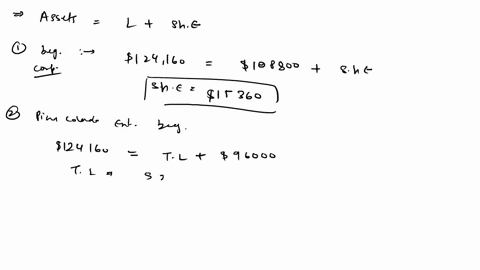 ⇒ Assets = L + Sh.E
① beg. :→ $124,160 = $108800 + S.h E
comp.
Sh.E = $15360
② Pina colada Ent. beg.
$124160 = T.L + $96000
T.L = 5,